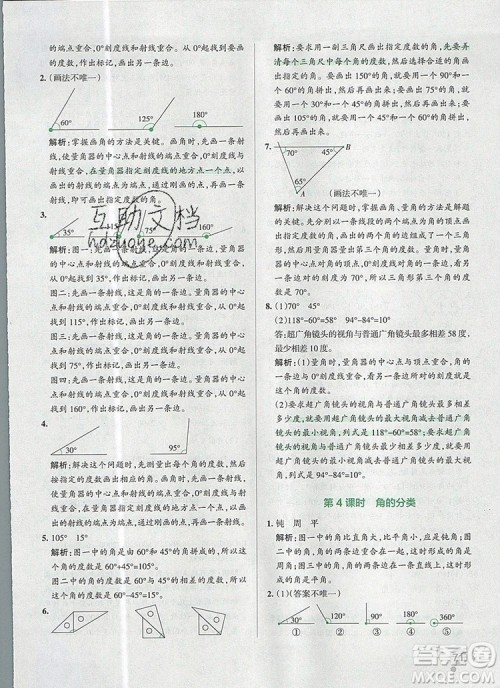 的端点重合,0°刻度线和射线重合。从0°起找到要画
的角的度数,作出标记,画出另一条边。
2. (画法不唯一)
60° 125° 180°
解析:掌握画角的方法是关键。画角的方法是先画一条
射线,使量角器的中心点和射线的端点重合,0°刻度线
和射线重合,在量角器指定刻度线的地方点一个点,从
射线的端点出发,通过刚画的点,再画一条射线,两条射
线即可画出指定度数的角。
3.
35° 75° 160°
解析:图一:先画一条射线,这是角的一条边。量角器的
中心点和射线的端点重合,0°刻度线和射线重合。从0°
起找到35°,作出标记,画出另一条边。
图二:先画一条射线,这是角的一条边。量角器的中心
点和射线的端点重合,0°刻度线和射线重合。从0°起找
到115°,作出标记,画出另一条边。
图三:先画一条射线,这是角的一条边。量角器的中心
点和射线的端点重合,0°刻度线和射线重合。从0°起找
到75°,作出标记,画出另一条边。
图四:先画一条射线,这是角的一条边。量角器的中心
点和射线的端点重合,0°刻度线和射线重合。从0°起找
到160°,作出标记,画出另一条边。
4.
30° 95°
解析:解决这个问题时,先测量出每个角的度数,然后按
要求画角。画角时先画一条射线,使量角器的中心点和
射线的端点重合,0°刻度线和射线重合,在量角器指定
刻度线的地方点一个点,从射线的端点出发,通过刚画
的点,再画一条射线,两条射线即可画出指定度数的角。
5. 105° 15°
解析:图一中的角是60°和45°的角拼成的,所以角的度
数是60°+45°=105°。
图二中的角是60°和45°的角拼成的,所以角的度数是
60°-45°=15°。
6.
解析:要求用一副三角尺画出指定度数的角,先要弄清
每个三角尺中角的度数,然后根据要求用三角尺中的角
拼出指定度数的角。要画出150°的角,可以用90°和
60°的角拼出来,然后再画出来。要画出75°的角,可以
用30°和45°的角拼出来,然后再画出来。要画出15°的
角,可以用60°和45°的角拼出来,然后再画出来。
7.
70° 45°
65°
A
(画法不唯一)
解析:掌握画指定度数的角、量角的方法是关键。画一
个三角形,使其中的两个角的度数分别是70°和45°,先
画一条线段,以线段的两个端点为顶点分别画出70°和
45°的角,两个角的边组成了一个三角形。量第3个角
的度数时,量角器的中心点与角的顶点重合,0°刻度线
与角的一条边重合,角的另一条边所对的量角器上的刻
度,就是第3个角的度数。所以三角形第三个角的度数
是65°。
(1)70° 45°
(2)118°-60°=58° 94°-84°=10°
答:超广角镜头的视角与普通广角镜头最多相差58度,
最少相差10度。
解析:(1)量角时,量角器的中心点与顶点重合,0°刻度
线与角的一条边重合,角的另一条边所对的量角器上的
刻度,就是这个角的度数。
(2)要求超广角镜头的视角与普通广角镜头最多相差
多少度,就用超广角镜头的最大视角减去普通广角镜
头的最小视角,列式是118°-60°=58°;要求超广角
镜头的视角与普通广角镜头最少相差多少度,就用超
广角镜头的最小视角减去普通广角镜头的最大视角,
列式是94°-84°=10°。
第4课时 角的分类
1. 钝 周 平
解析:图一中的角比直角大,比平角小,所以是钝角。
图二中的角的两条边重合在一起,这时形成的角是周
角。图三中角的两条边在同一条直线上,这时形成的
角是平角。
2. (1)(答案不唯一)
30° 120° 90° 180° 360°
① ② ③ ④ ⑤
互助文档
hdzuoye.com
作业精灵